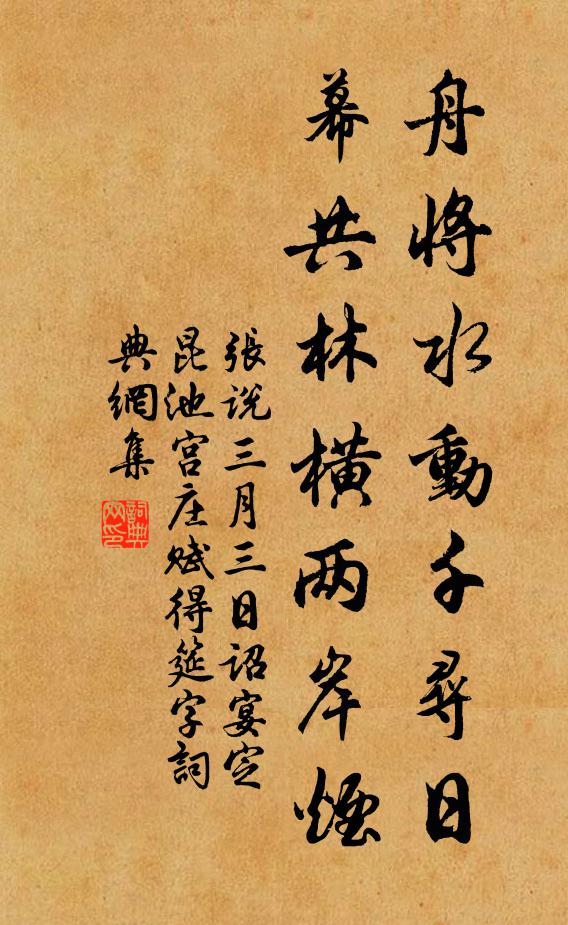 舟將水動千尋日
幕共林橫两岸煙
張說三月三日詔宴定
昆池宫庄赋得筵字詞
典網集
詞典
网印